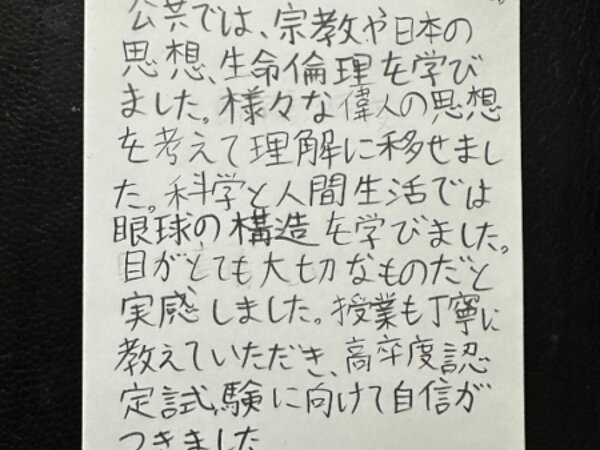 公共では、宗教や日本の
思想、生命倫理を学び
ました。様々な偉人の思想
を考えて理解に移せまし
た。科学と人間生活では
眼球の構造を学びました。
目がとても大切なものだと
実感しました。授業も丁寧に
教えていただき、高卒度認
定試験に向けて自信が
つきました